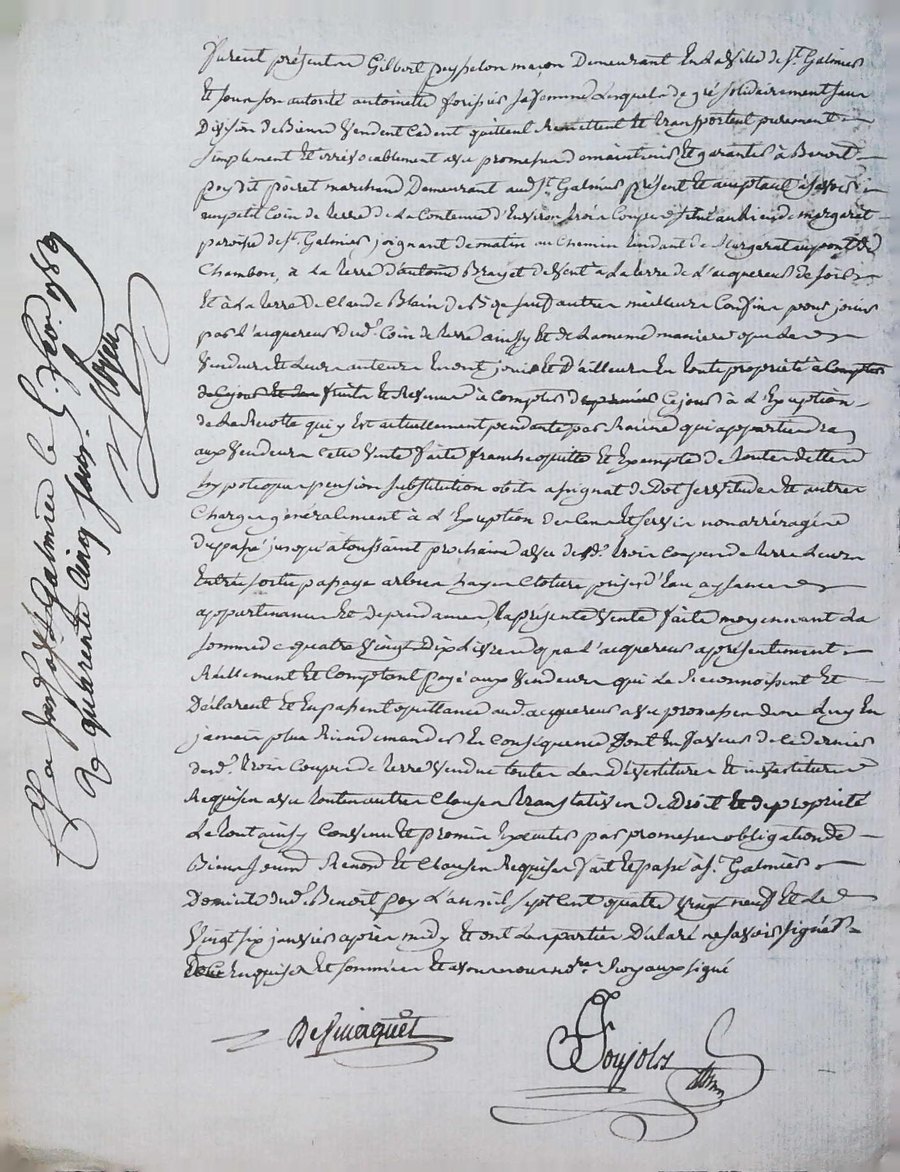 furent présents Gilbert peysselon maçon Demeurant En La ville de St Galmier
Et sous son autorité antoinette sa femme Lesquels de gré solidairement sans
Division de Biens vendent Cedent quittent Remettent Et transportent purement
simplement Et irrevocablement avec promesse de maintenir Et garantir à Benoit
poy dit marchand Demeurant aud. St Galmier présent Et acceptant à savoir
un petit Coin de terre de La Contenue d'Environ trois Coupes situé au lieu de margerat
paroisse de St Galmier joignant de matin au Chemin tendant de margerat au pont de
Chambon, à La terre d'antoine de vent à La terre de L'acquereur de soir
Et à La terre de Claude Blain de Bize sauf autres meilleurs Confins pour jouir
par L'acquereur dud. Coin de terre ainsy Et de La meme maniere que les
vendeurs et Leurs auteurs En ont joui Et D'ailleurs En toute propriété à Compter
de Ce jour fruits et Revenus à Compter de Ce jour à L'Exception
de La Recolte qui y Est actuellement pendante par Racine qui appartiendra
aux vendeurs Cette vente faite franche quitte Et Exempte de toutes dettes
hypoteques pension substitution obits assignat de Dot servitudes Et autres
Charges généralement à L'Exception de Cens Et servis non arréragés
du passé jusqu'a toussaint prochaine avec desd. trois Coupes de terre Leurs
Entrées sorties passage arbres hayes Cloture prises d'Eau aysances
appartenances Et dependances, La présente vente faite moyennant La
somme de quatre vingt Dix Livres que L'acquereur a présentement
Réellement Et Comptant payé aux vendeurs qui Le Reconnoissent Et
Déclarent Et En passent quittance aud. acquereur avec promesse de ne Luy En
jamais plus Rien demander En Conséquence sont En faveur de Ce dernier
desd. trois Coupes de terre vendues toutes Les Devestitures Et investitures
Requises avec toutes autres Clauses translatives de Droit Et de propriété
Le tout ainsy Convenu Et promis Executer par promesses obligation de
Biens soumis Renon et Clauses Requises fait Et passé à St Galmier
Domicile dud. Benoit poy L'an mil sept Cent quatre vingt neuf Et Le
vingt six janvier après midy Et ont Les parties Déclaré ne savoir signer
de Ce Enquises Et sommées Et avons nous nores Royaux signé
DeSimaquet
Soujols
St Galmier le 5. feb. 1789
quarante Cinq sous.